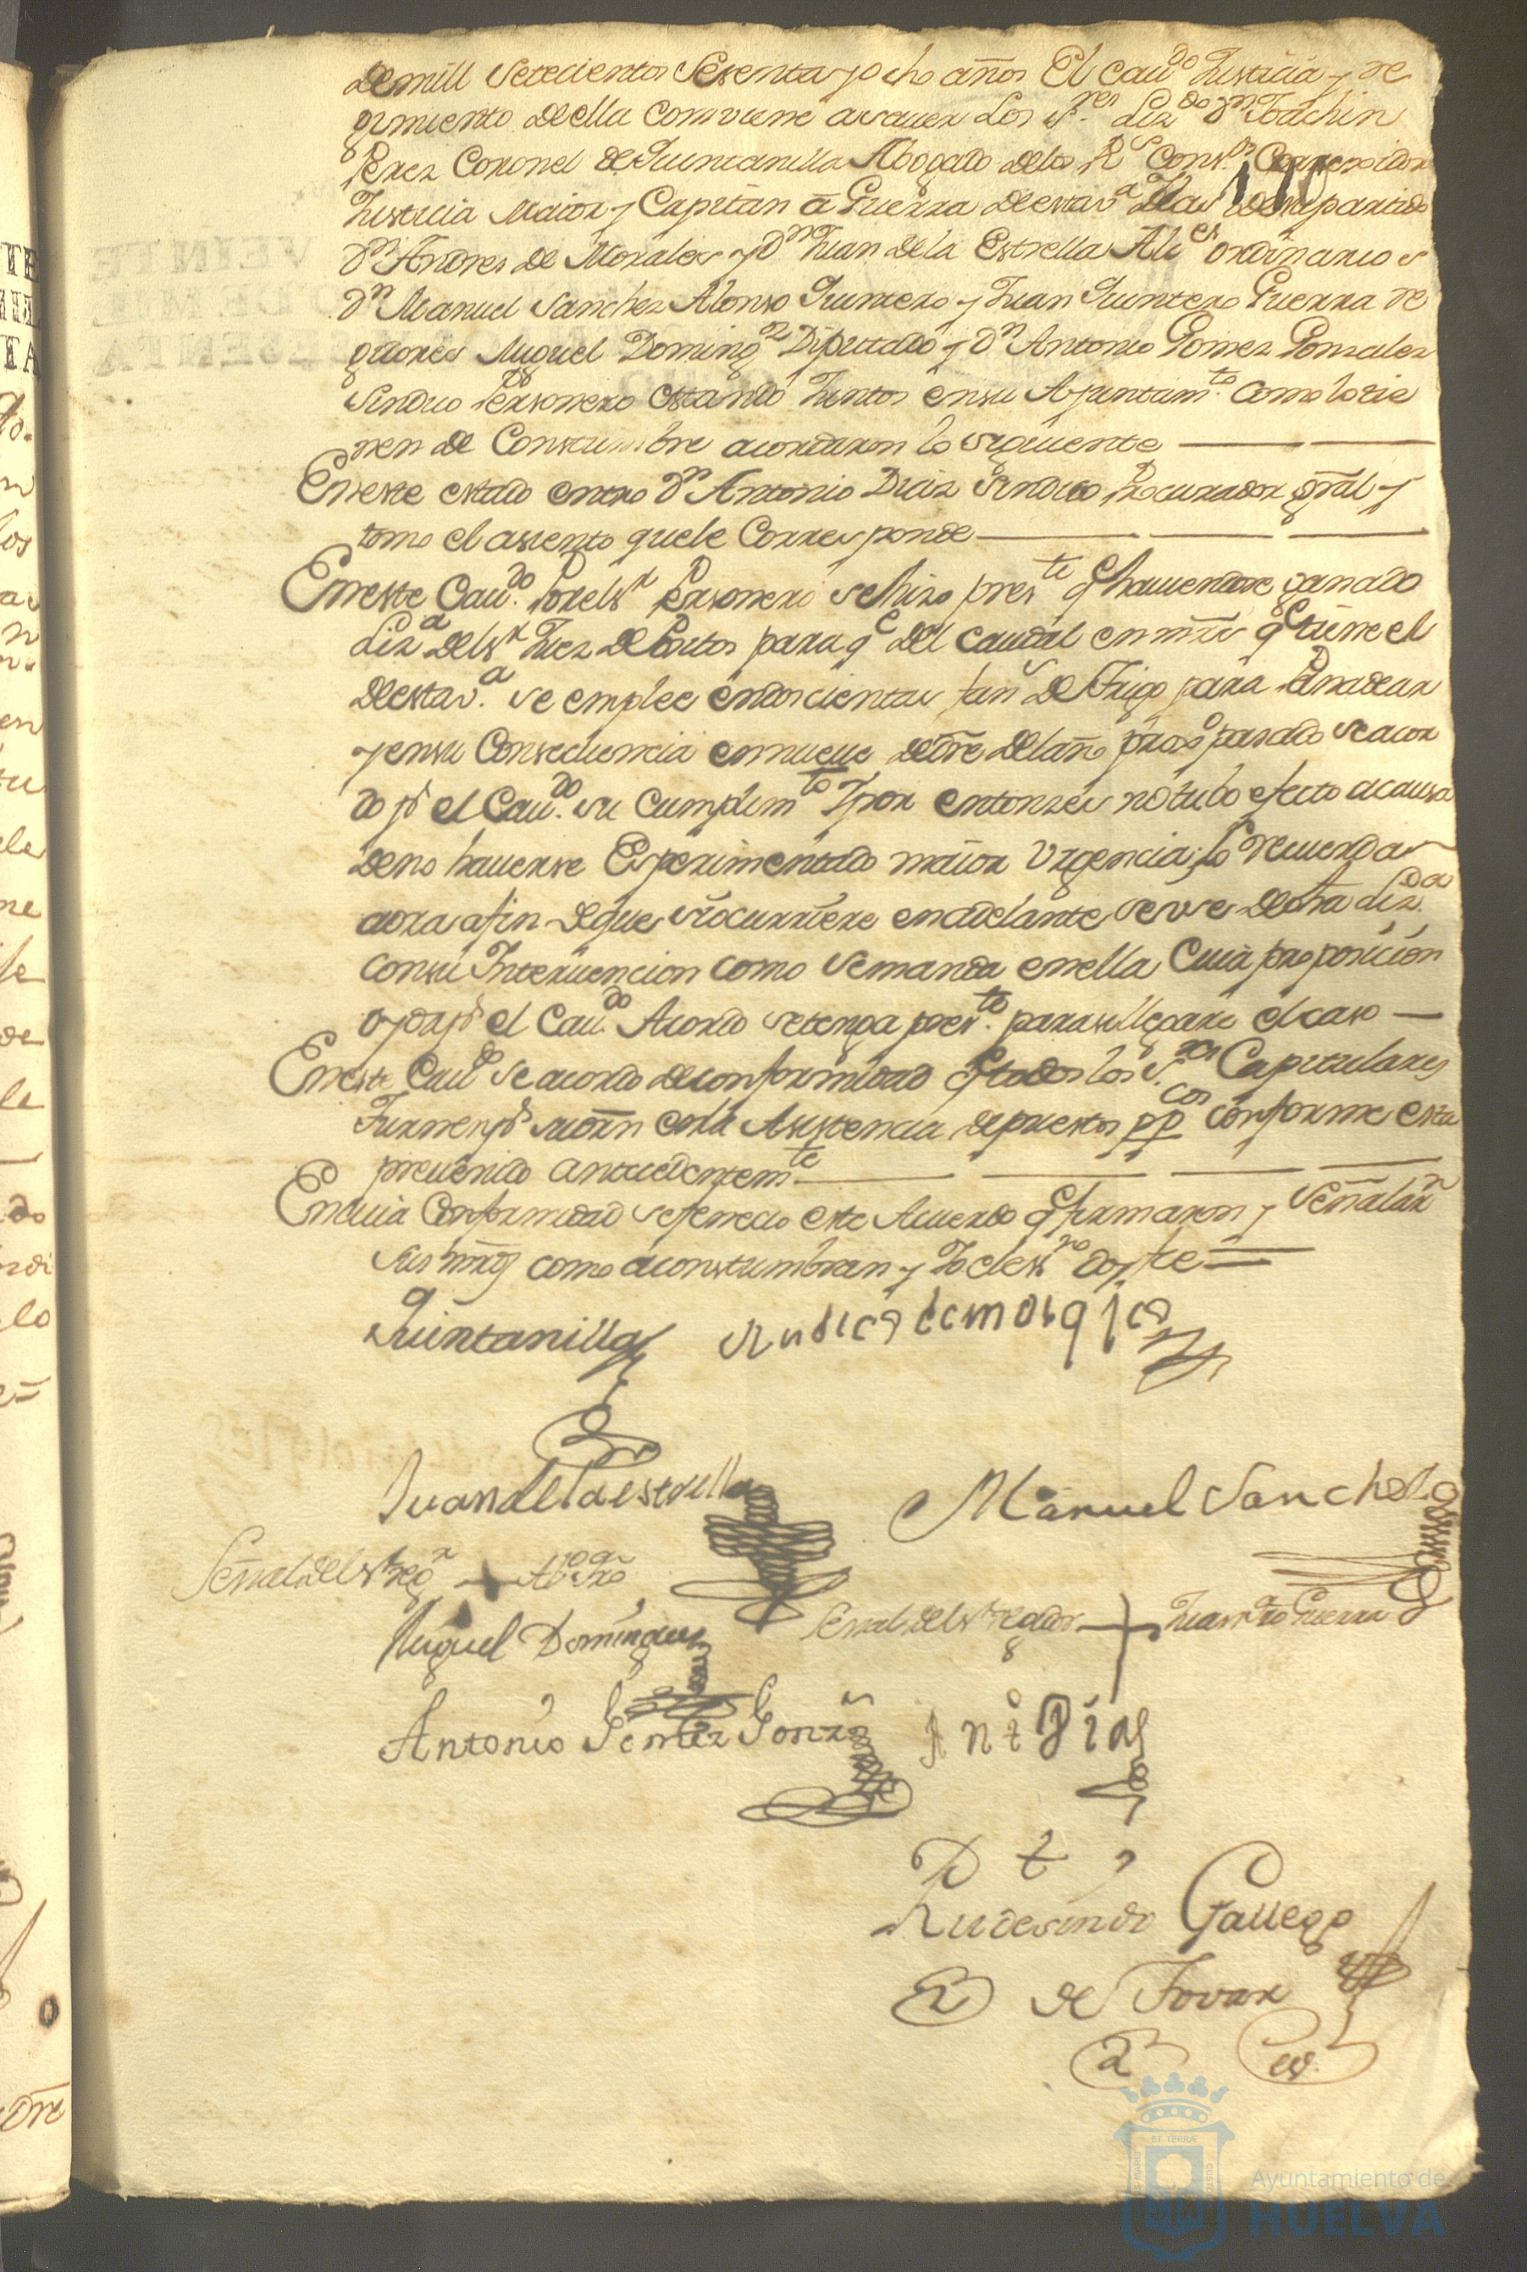 de mill Setecientos Sesenta y ocho años El Cau.do Justicia y Re
gimiento de ella combiene a saver Los S.res Liz.do Dn Joachin
Perez Coronel de Quintanilla Abogado de los R.s Cons.os Correxidor
Justicia Maior y Capitan â Guerra de esta v.a
Dn Andres de Morales y Dn Juan de la Estrella Alc.es ordinarios
Dn Manuel Sanchez Alonso Quintero y Juan Quintero Guerra Re
gidores Miguel Doming.z Diputado y Dn Antonio Gomez Gonzalez
Sindico Personero estando Juntos en su Ayuntam.to como lo tie
nen de Constumbre acordaron lo siguiente
En este estado entro Dn Antonio Diaz Sindico Procurador gral y
tomo el asiento que le Corresponde
En este Cau.do Por el Sr Personero se hizo pres.te q.e haviendose ganado
Liz.a del Sr Juez de Positos para q.e del caudal en mrs q.e tiene el
de esta v.a se emplee en doscientas fan.s de Trigo para Panadear
y en su Consecuencia en nueve de dre del año proxo pasado se acor
do pr el Cau.do su cumplim.to Y por entonzes no tubo efecto a causa
de no haverse Experimentado maior Vrgencia, lo recuerda
aora a fin de que si ocurriere en adelante se vse de dha Liz.a
con su Intervencion como se manda en ella Cuia proposicion
oyda pr el Cau.do Acordo se tenga pres.te para si llegare el caso
En este Cau.do se acordo de conformidad q.e todos los S.res Capitulares
Turnen pr en la Asistencia de puestos pp.cos conforme esta
prevenido antecedentem.te
En cuia Conformidad se fenecio este Acuerdo q.e firmaron y señalarn
Sus mrds como aconstumbran y Yo el essno doy fee
Quintanilla Andres de morales
Juan de la estrella Manuel Sanchez
Señal del Sr Reg.r + Al.o Qro
Miguel Dominguez Señal del Sr Regidor + Juan Qro Guerra
Antonio Gomez Gonz.z Anto Dias
Rudesindo Gallego
de Tovar
Ayuntamiento de
HUELVA